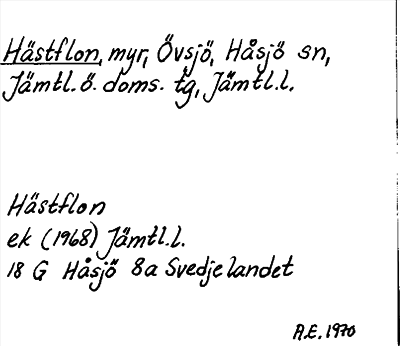 Hästflon, myr, Övsjö, Håsjö sn,
Jämtl. ö. doms. tg, Jämtl.l.
Hästflon
ek (1968) Jämtl.l.
18 G Håsjö 8a Svedjelandet
A.E. 1970